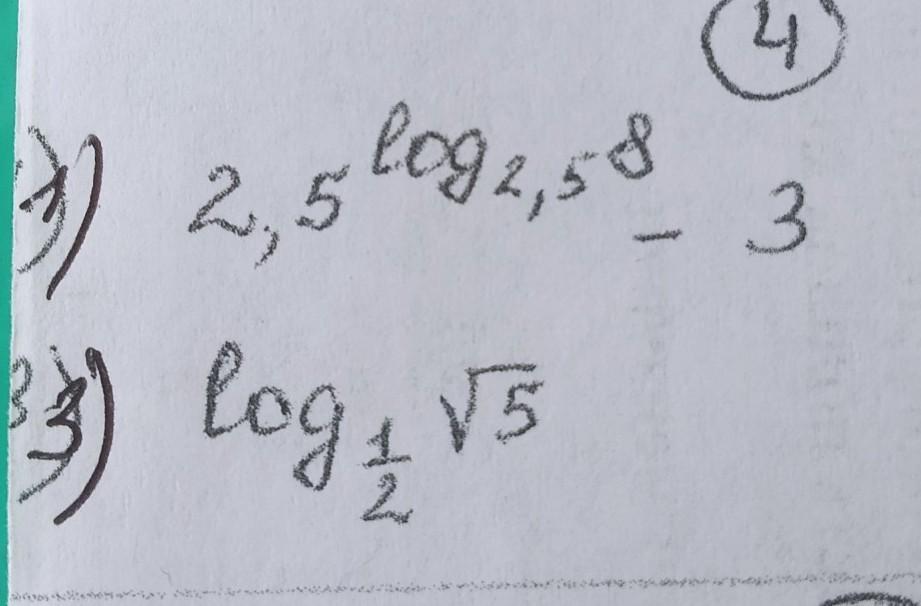 4
1) 2,5^{log_{2,5} 8} - 3
3) log_{\frac{1}{2}} √5